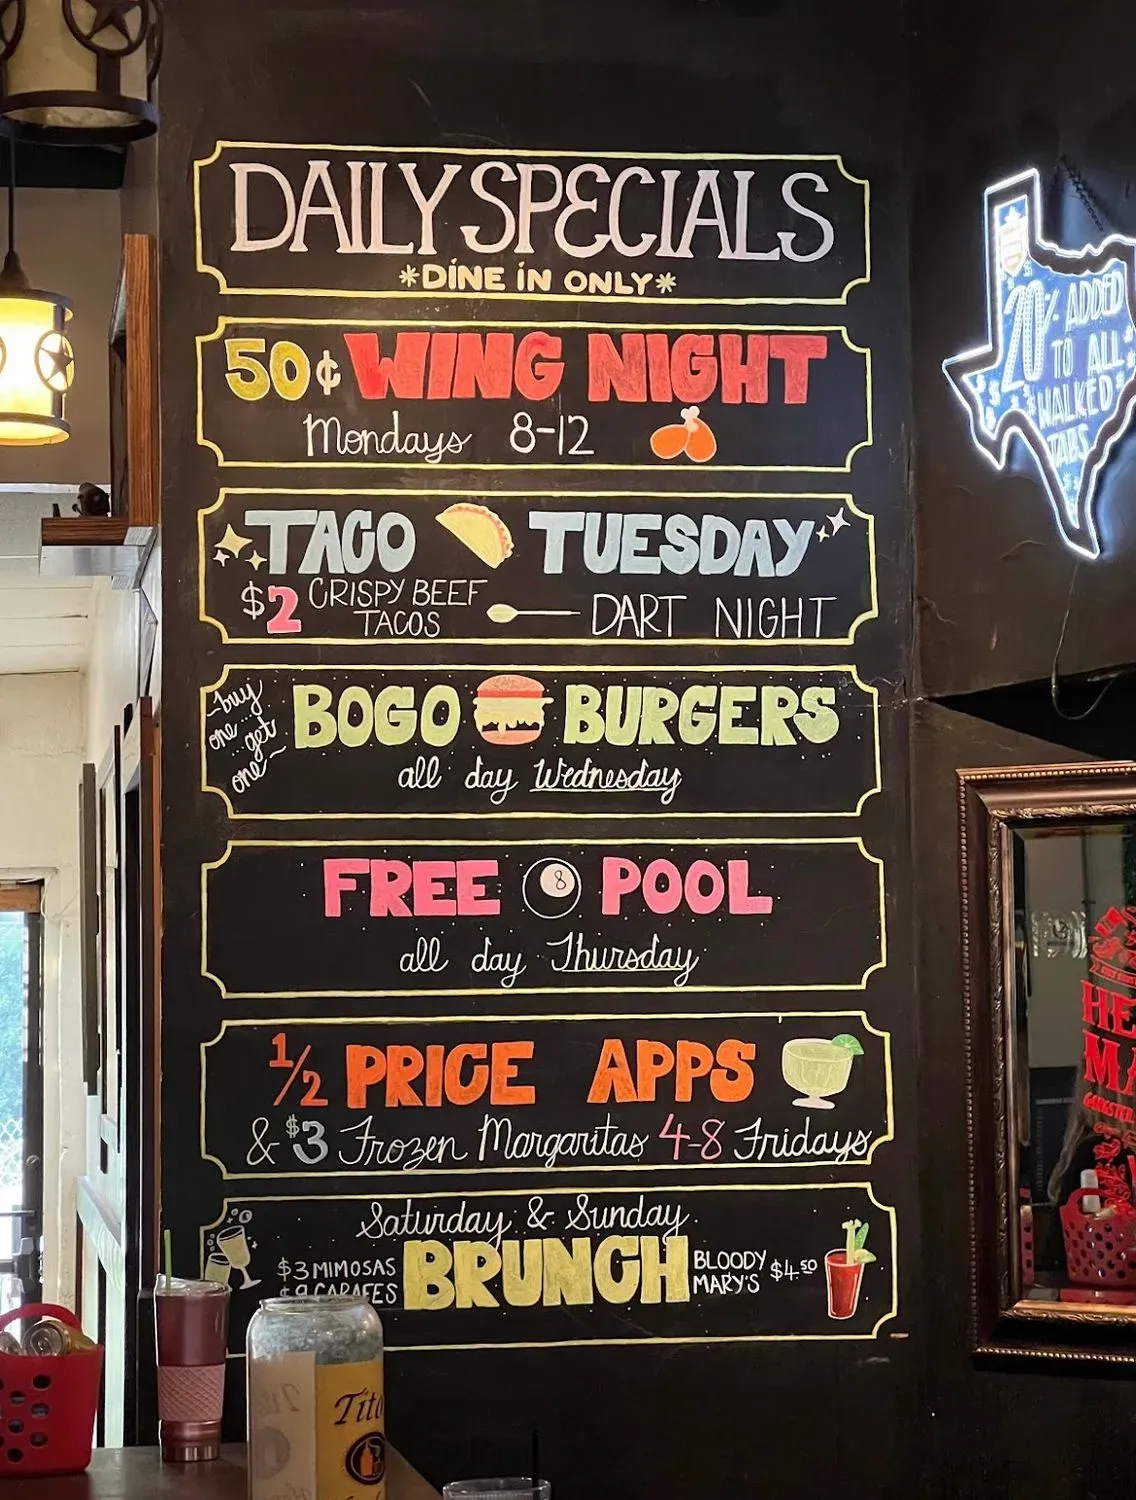 DAILY SPECIALS
*DINE IN ONLY*
50¢ WING NIGHT
Mondays 8-12
TACO TUESDAY
$2 CRISPY BEEF TACOS DART NIGHT
~buy one... get one~
BOGO BURGERS
all day Wednesday
FREE 8 POOL
all day Thursday
1/2 PRICE APPS
& $3 Frozen Margaritas 4-8 Fridays
Saturday & Sunday
BRUNCH
$3 MIMOSAS
$9 CARAFES
BLOODY
MARY'S $4.50
20% ADDED
TO ALL
WALKED
TABS
Tito